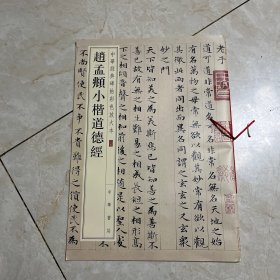 老子
道可道非常道名可名非常名無名天地之始
有名萬物之母常無欲以觀其妙常有欲以觀
其徼此兩者同出而異名同謂之玄玄之又玄衆
妙之門
天下皆知美之為美斯惡已皆知善之為善斯不
善已故有無之相生難易之相成長短之相形高
下之相傾音聲之相和前後之相隨是以聖人
中華經典碑帖彩色放大本
趙孟頫小楷道德經
中華書局
不尚賢使民不爭不貴難得之貨使民不為